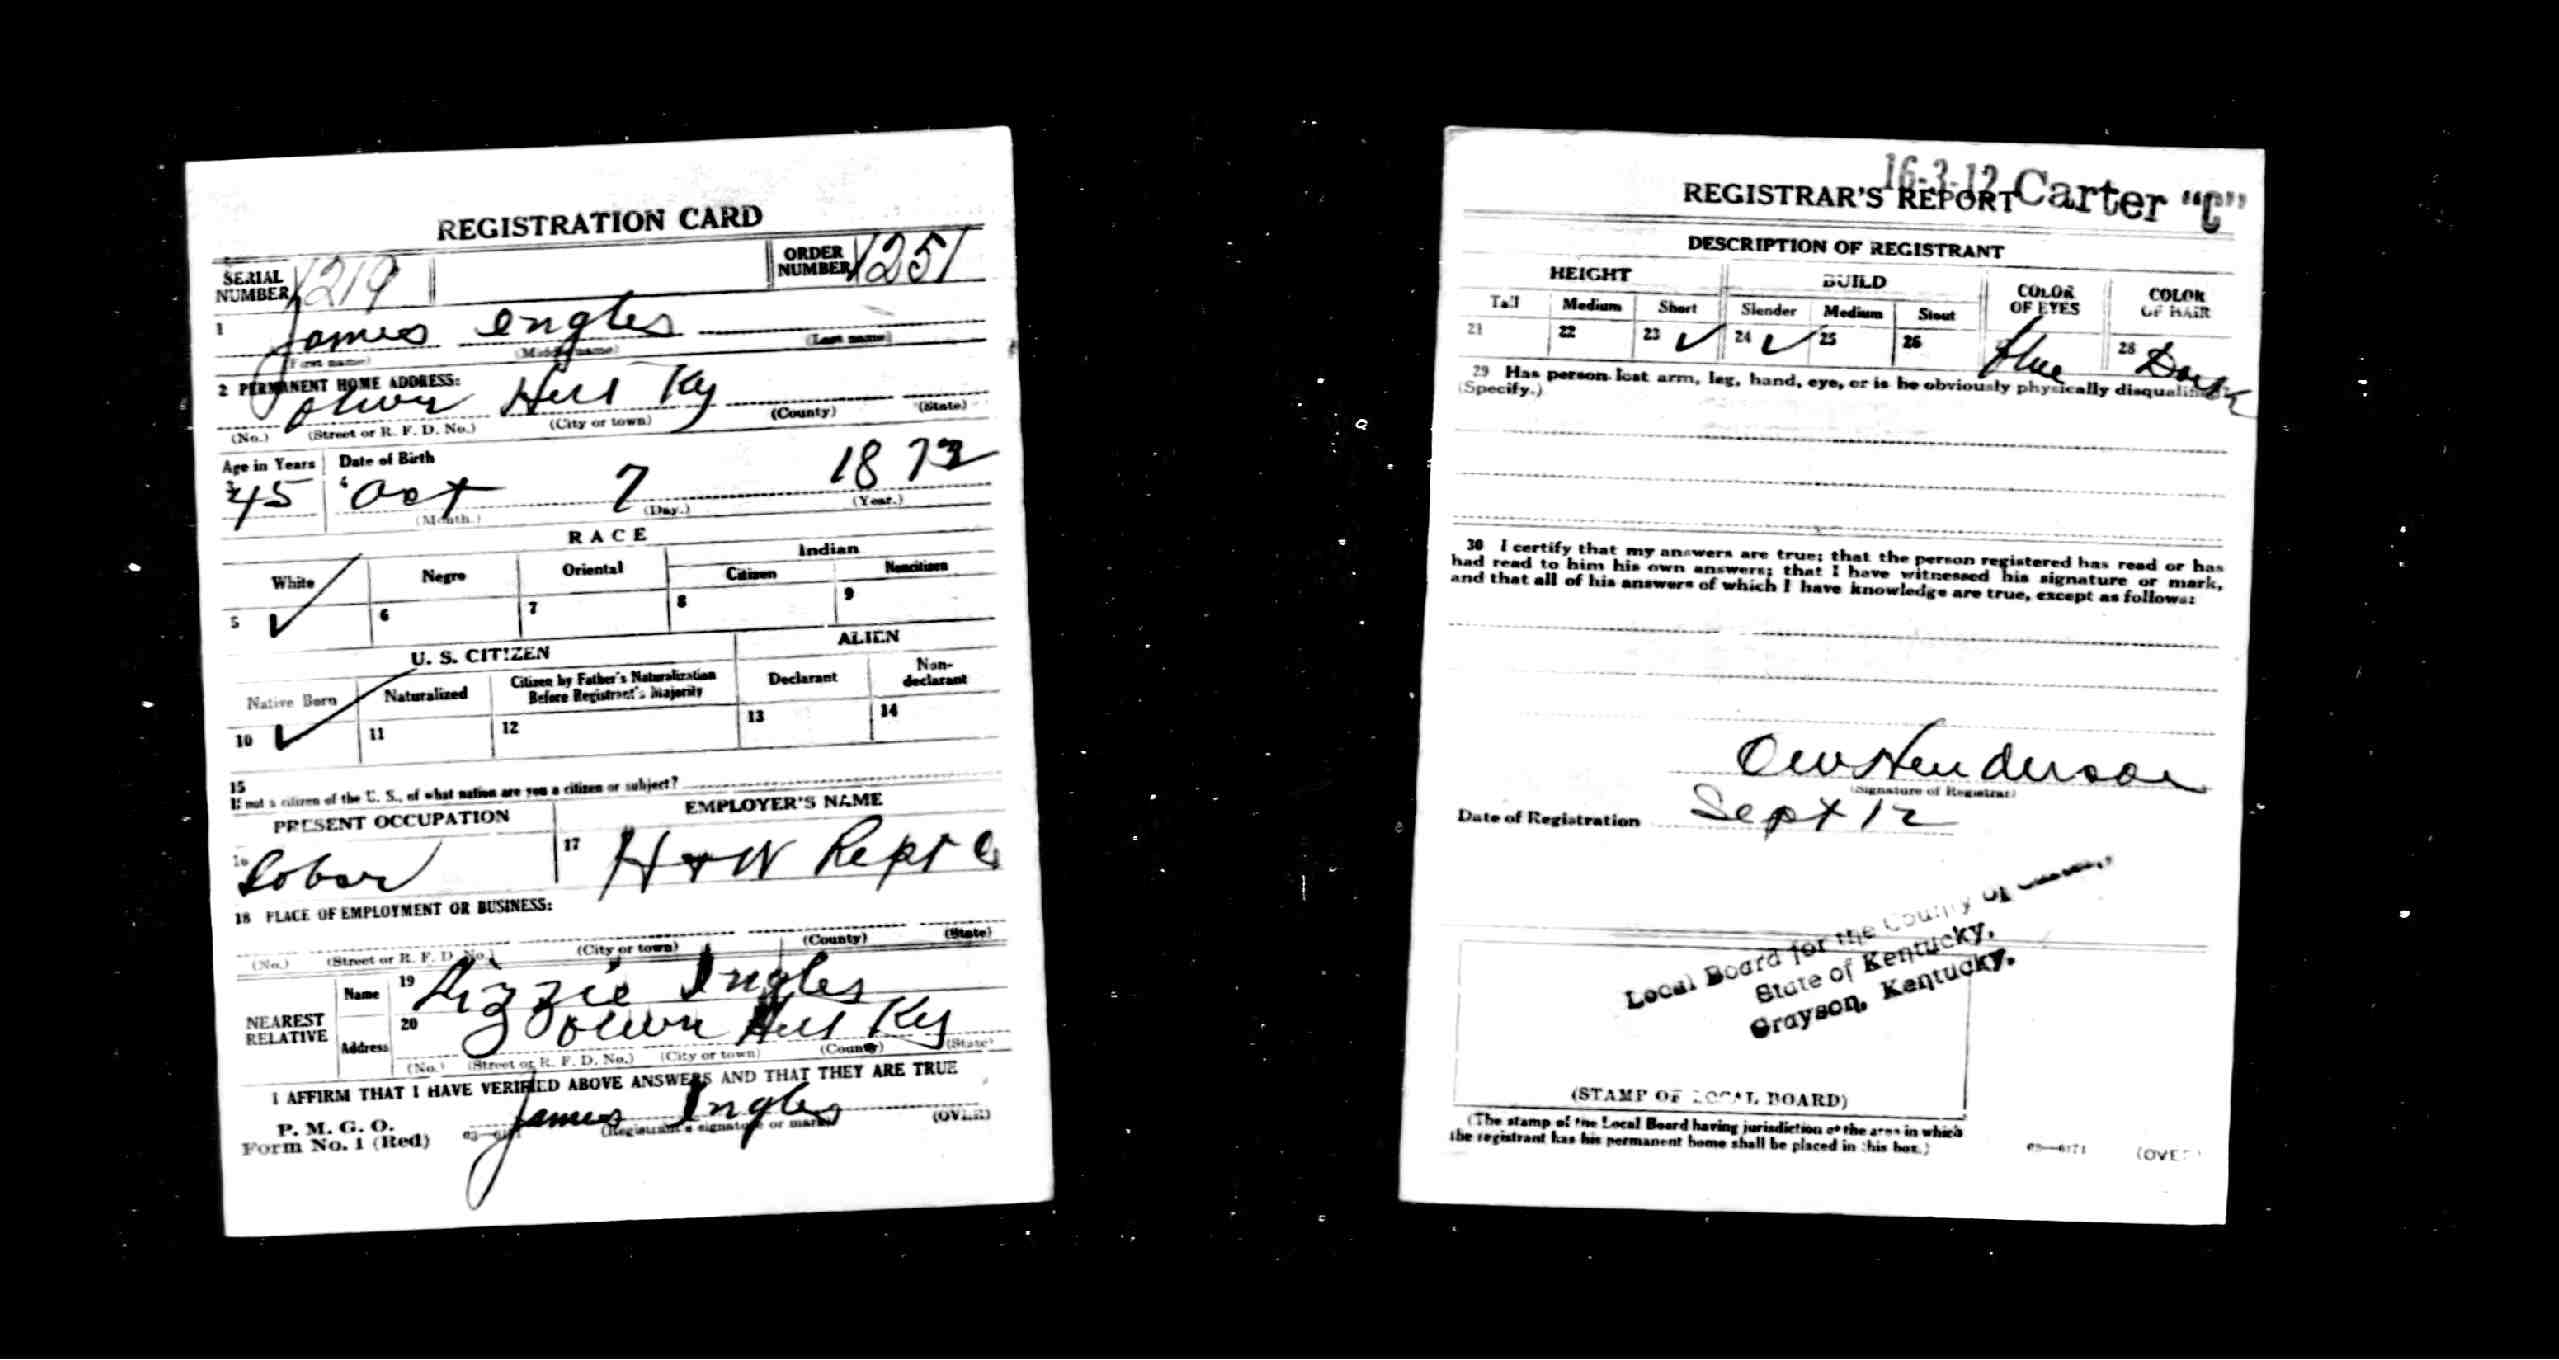 REGISTRATION CARD
SERIAL NUMBER 1219 ORDER NUMBER 1251
1 James Ingles
(First name) (Middle name) (Last name)
2 PERMANENT HOME ADDRESS:
Oliver Hill Ky
(No.) (Street or R. F. D. No.) (City or town) (County) (State)
Age in Years Date of Birth
3 45 4 Oct 7 1872
(Month.) (Day.) (Year.)
RACE
White Negro Oriental Indian
Citizen Noncitizen
5 ✓ 6 7 8 9
U. S. CITIZEN ALIEN
Native Born Naturalized Citizen by Father's Naturalization Before Registrant's Majority Declarant Non-declarant
10 ✓ 11 12 13 14
15
If not a citizen of the U. S., of what nation are you a citizen or subject?
PRESENT OCCUPATION EMPLOYER'S NAME
16 Labor 17 H + W
18 PLACE OF EMPLOYMENT OR BUSINESS:
(No.) (Street or R. F. D. No.) (City or town) (County) (State)
NEAREST RELATIVE
Name 19 Lizzie Ingles
Address 20 Oliver Hill Ky
(No.) (Street or R. F. D. No.) (City or town) (County) (State)
I AFFIRM THAT I HAVE VERIFIED ABOVE ANSWERS AND THAT THEY ARE TRUE
P. M. G. O.
Form No. 1 (Red) 03—6171 James Ingles (OVER)
(Registrant's signature or mark)
16-3-12 Carter "C"
REGISTRAR'S REPORT
DESCRIPTION OF REGISTRANT
HEIGHT BUILD COLOR OF EYES COLOR OF HAIR
Tall Medium Short Slender Medium Stout
21 22 23 ✓ 24 ✓ 25 26 Blue 28 Dark
29 Has person lost arm, leg, hand, eye, or is he obviously physically disqualified?
(Specify.)
30 I certify that my answers are true; that the person registered has read or has
had read to him his own answers; that I have witnessed his signature or mark,
and that all of his answers of which I have knowledge are true, except as follows:
Henderson
(Signature of Registrar)
Date of Registration Sept 12
Local Board for the County of
State of Kentucky,
Grayson, Kentucky.
(STAMP OF LOCAL BOARD)
(The stamp of the Local Board having jurisdiction of the area in which
the registrant has his permanent home shall be placed in this box.)
03—6171 (OVER)